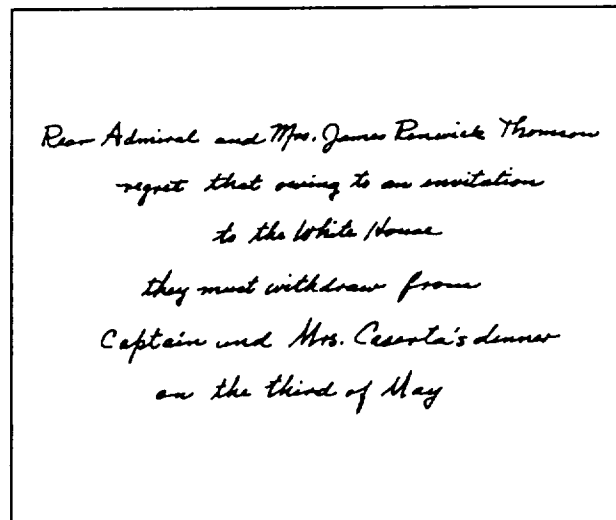 Rear Admiral and Mrs. James Renwick Thomson
regret that owing to an invitation
to the White House
they must withdraw from
Captain and Mrs. Caserta's dinner
on the third of May